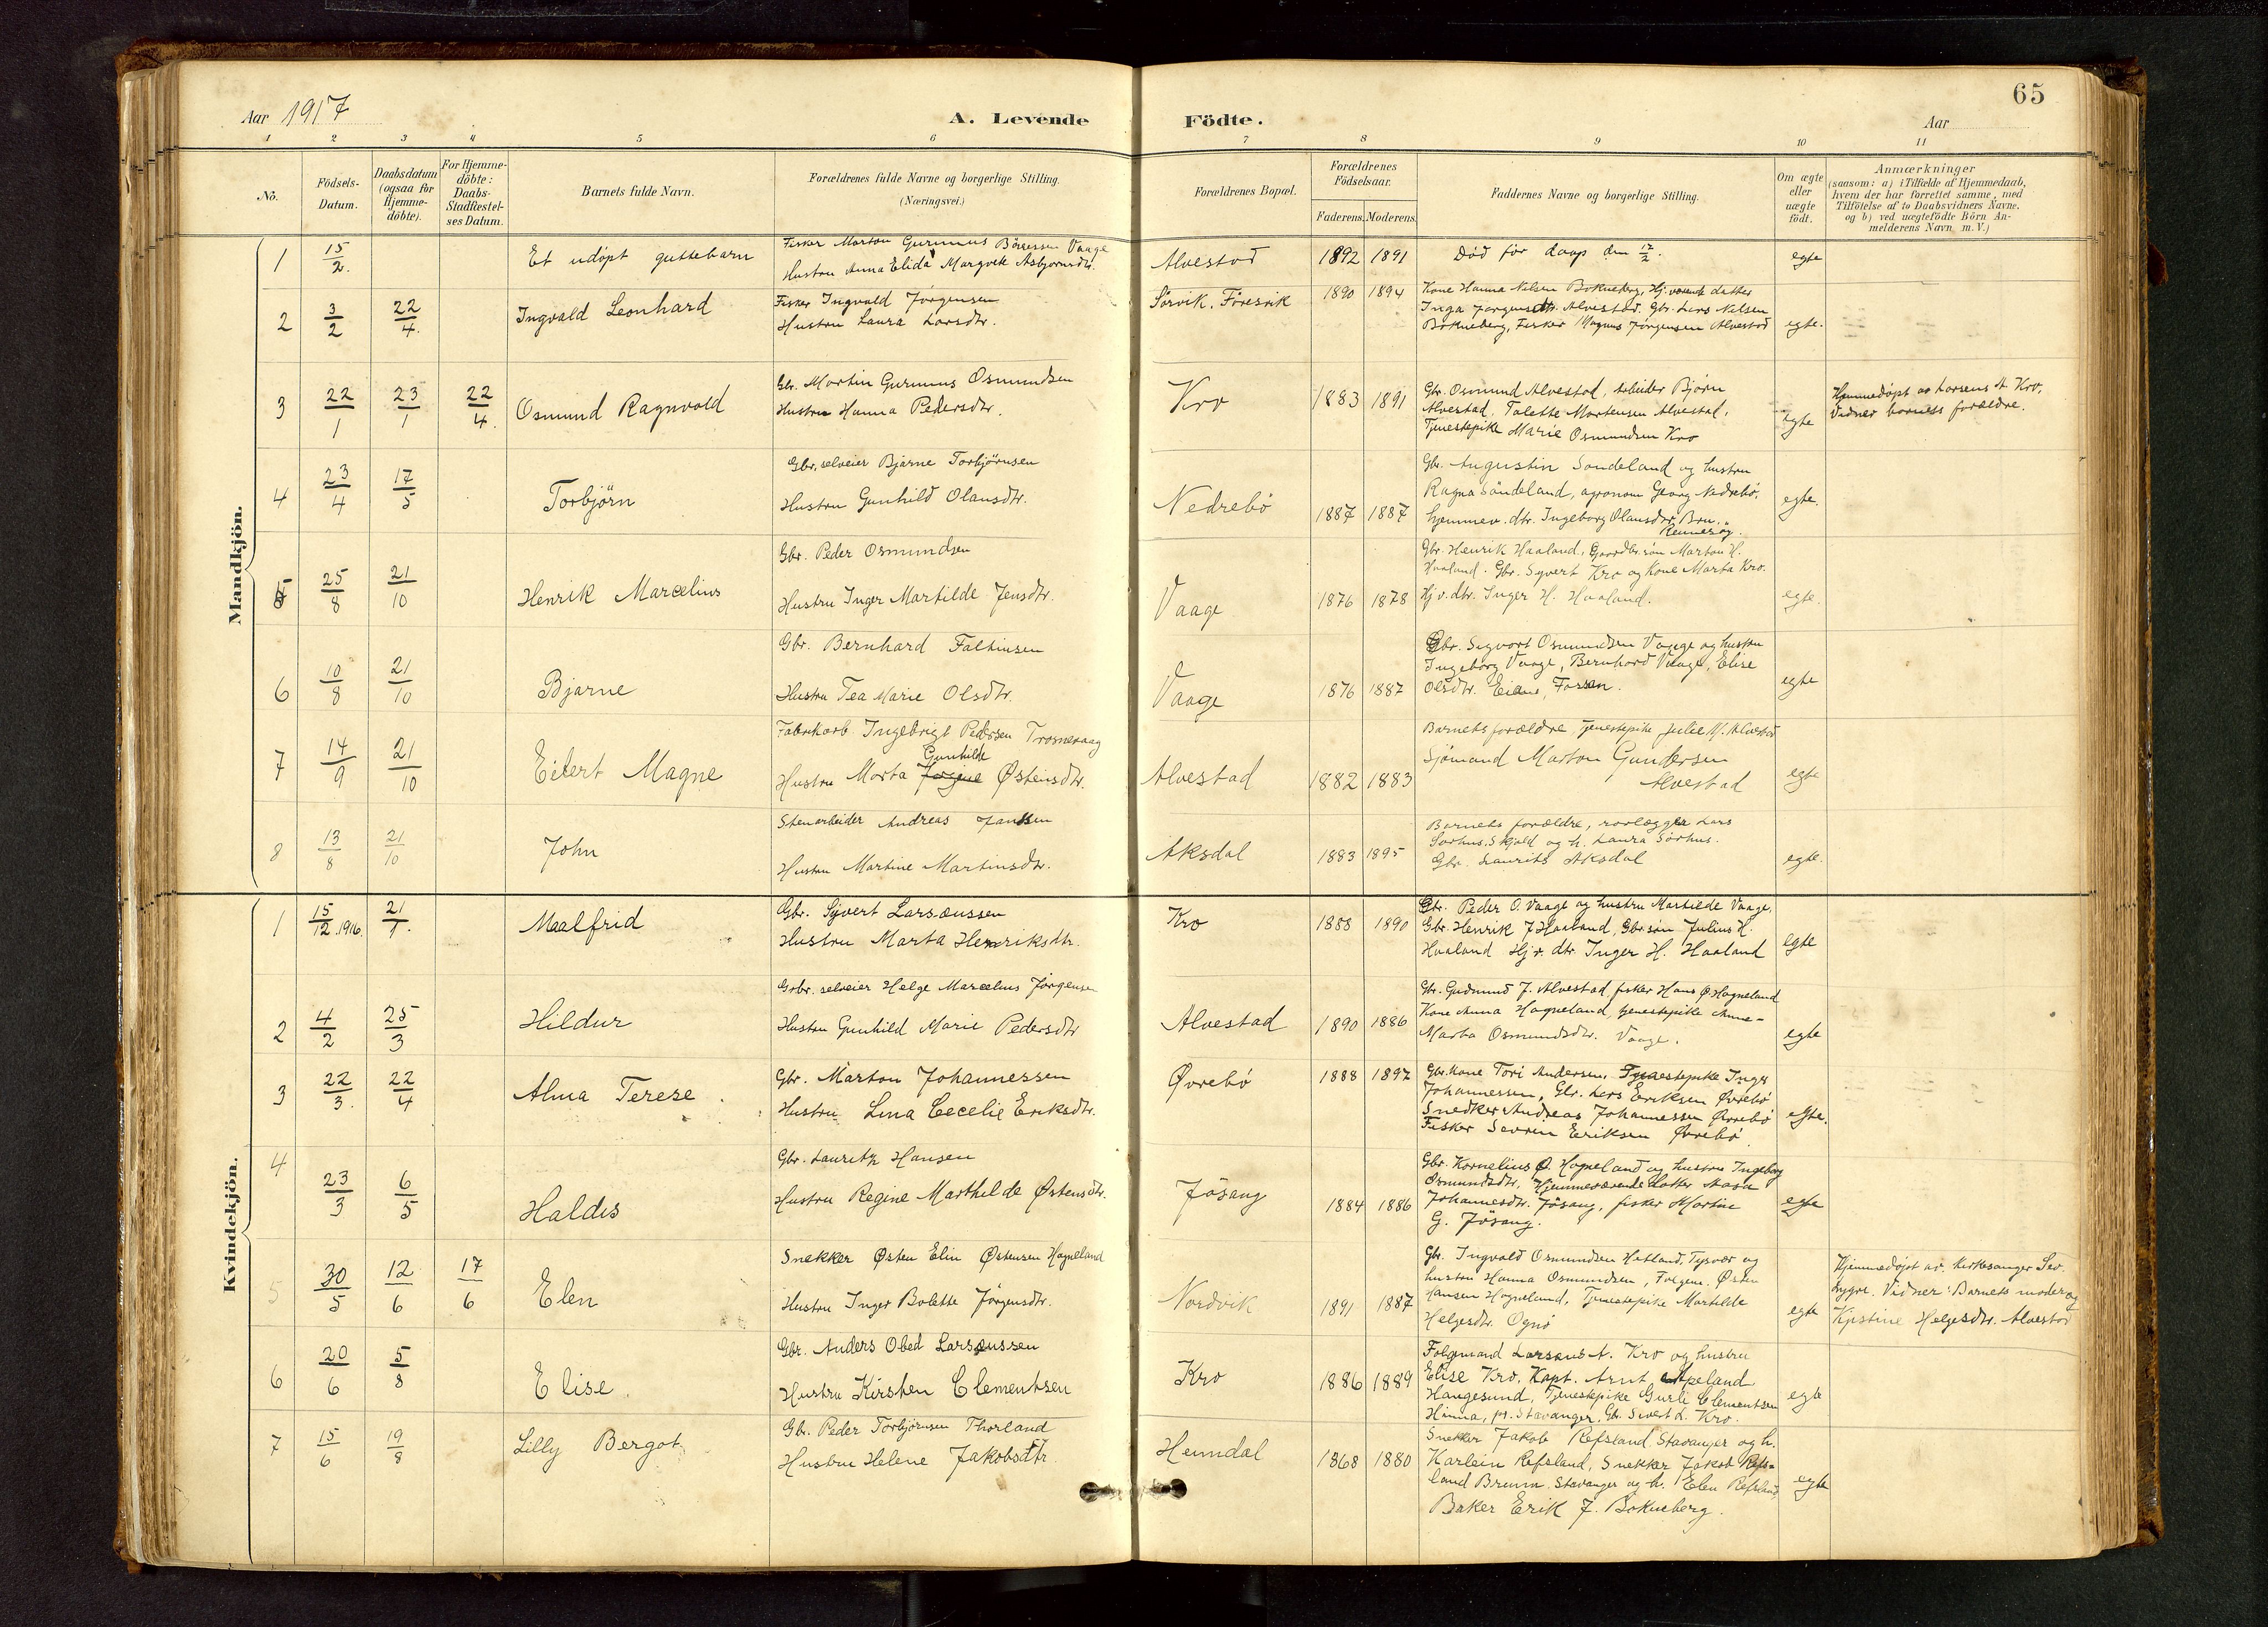 65
Aar 1917
A. Levende Födte.
Aar
1 2 3 4 5 6 7 8 9 10 11
No.
Födsels-Datum.
Daabsdatum (ogsaa for Hjemme-döbte).
For Hjemme-döbte: Daabs-Stadfestel-ses Datum.
Barnets fulde Navn.
Forældrenes fulde Navne og borgerlige Stilling.
(Næringsvei.)
Forældrenes Bopæl.
Forældrenes Födselsaar.
Faderens. Moderens.
Faddernes Navne og borgerlige Stilling.
Om ægte eller uægte födt.
Anmærkninger
(saasom: a) i Tilfælde af Hjemmedaab,
hvem der har forrettet samme, med
Tilföielse af to Daabsvidners Navne.
og b) ved uægtefödte Börn An-
melderens Navn m. V.)
Mandkjön.
1 15/2. Et udöpt guttebarn
Fisker Morton Gurinius Börresen Vaage
Hustru Anna Elida Margrete Asbjørnsdtr.
Alvestad 1892 1891
Död før daap den 17/2.
egte
2 3/2 22/4. Ingvald Leonhard
Fisker Ingvald Jørgensen
Hustru Laura Larsdtr.
Sørvik, Föresvik 1890 1894
Kone Hanna Nilsen Bokneberg, Hj.værende datter
Inga Jørgensdtr. Alvestad. Gbr. Lars Nilsen
Bokneberg, Fisker Magnus Jørgensen Alvestad
egte.
3 22/1 23/1 22/4. Osmund Ragnvald
Gbr. Martin Gurinius Osmundsen
Hustru Hanna Pedersdtr.
Kro 1883 1891
Gbr. Osmund Alvestad, arbeider Bjørn
Alvestad, Talette Mortensen Alvestad,
Tjenestepike Marie Osmundsen Kro
egte
Hjemmedøpt av Larsens A. Kro,
Vidner barnets forældre.
4 23/4 17/5 Torbjörn
Gbr. selveier Bjarne Torbjörnsen
Hustru Gunhild Olausdtr.
Nedrebö 1887 1887
Gbr. Augustin Søndeland og hustru
Ragna Søndeland, agronom Georg Nedrebö,
hjemmev. dtr. Ingeborg Olausdtr. Bru,
Rennesøy.
egte.
5 25/8 21/10 Henrik Marcelius
Gbr. Peder Osmundsen
Hustru Inger Martilde Jensdtr.
Vaage 1876 1878
Gbr. Henrik Haaland, Gaardbr.søn Morton H.
Haaland. Gbr. Syvert Kro og Kone Marta Kro.
Hj.v. dtr. Inger H. Haaland.
egte.
6 10/8 21/10 Bjarne
Gbr. Bernhard Faltinsen
Hustru Tea Marie Olsdtr.
Vaage 1876 1887
Gbr. Sigvort Osmundsen Vaage og hustru
Ingeborg Vaage, Bernhard Vaage, Elise
Olsdtr. Eiane, Fossan.
egte
7 14/9 21/10 Eilert Magne
Fabrikarb Ingebrigt Pedersen Trosnevaag
Gunhilde
Hustru Marta Östensdtr.
Alvestad 1882 1883
Barnets forældre, Tjenestepike Julie M. Alvestad
Sjømand Morton Gundersen
Alvestad
egte
8 13/8 21/10 John
Stenarbeider Andreas Janssen
Hustru Martine Martinsdtr.
Aksdal 1883 1895
Barnets forældre, rørlægger Lars
Sørhus, Skjold og h. Laura Sørhus.
Gbr. Laurits Aksdal
egte.
Kvindekjön.
1 15/12.1916. 21/1. Maalfrid
Gbr. Sjvert Larsæussen
Hustru Marta Henriksdtr.
Kro 1888 1890
Gbr. Peder O. Vaage og hustru Martilde Vaage,
Gbr. Henrik J Haaland, Gbr.søn Julius H.
Haaland Hj.v. dtr. Inger H. Haaland
egte
2 4/2 25/3 Hildur
Grbr. selveier Helge Marcelius Jørgensen
Hustru Gunhild Marie Pedersdtr
Alvestad 1890 1886
Gbr. Gudmund J. Alvestad, fisker Hans Ø. Hogneland
Kone Anna Hogneland, tjenestepike Anne-
Marta Osmundsdtr. Vaage.
egte
3 22/3. 22/4 Alma Terese
Gbr. Marton Johannessen
Hustru Lina Cecelie Eriksdtr.
Øvrebö 1888 1892
Gbr. Kone Tori Andersen, Tjenestepike Inger
Johannessen, Gbr. Lars Eriksen Øvrebö
Snedker Andreas Johannessen Øvrebö
Fisker Sevrin Eriksen Øvrebö.
egte.
4 23/3 6/5 Haldis
Gbr. Lauritz Hansen
Hustru Regine Marthilde Østensdtr.
Jösang 1884 1886
Gbr. Kornelius Ø. Hogneland og hustru Ingeborg
Osmundsdtr, Hjemmeværende datter
Johannesdtr. Jösang, fisker Martin
G. Jösang.
egte
5 30/5 12/6 17/6 Elen
Snekker Østen Elin Østensen Hogneland
Hustru Inger Bolette Jørgensdtr.
Nordvik 1891 1887
Gbr. Ingvald Osmundsen Hetland, Tysvær og
hustru Hanna Osmundsen, Østen
Hansen Hogneland, Tjenestepike Martilde
Helgesdtr. Ognø
egte
Hjemmedøpt av. Kirkesanger Sev.
Bygre. Vidner: Barnets moder og
Kristine Helgesdtr. Alvestad
6 20/6 5/8 Elise.
Gbr. Anders Obed Larsæussen
Hustru Kirsten Clementsen
Kro 1886 1889
Folgemand Larsæus A. Kro og hustru
Elise Kro, Kapt. Arnt Apeland
Haugesund, Tjenestepike Gurli Clementsen
Hinna, pr. Stavanger, Gb. Sivert L. Kro.
egte
7 15/6 19/8 Lilly Bergot
Gb. Peder Torbjørnsen Thorland
Hustru Helene Jakobsdtr
Hemdal 1868 1880
Snekker Jakob Refsland, Stavanger og h.
Karlein Refsland, Snekker Jakob Refs-
land Bruun, Stavanger og h. Elen Refsland
Baker Erik J. Bokneberg.
egte